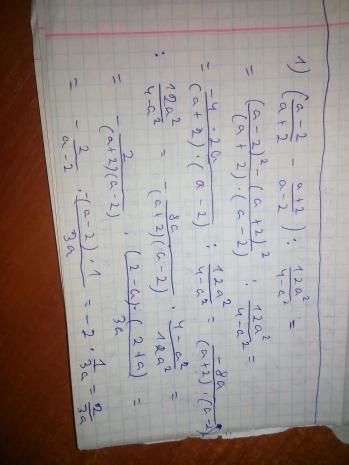 1) (a-2/a+2 - a+2/a-2) : 12a²/4-a² =
= (a-2)²-(a+2)²/(a+2)·(a-2) : 12a²/4-a² =
= -4·2a/(a+2)·(a-2) : 12a²/4-a² = -8a/(a+2)·(a-2) :
: 12a²/4-a² = -8a/(a+2)(a-2) · 4-a²/12a² =
= - 2/(a+2)(a-2) · (2-a)·(2+a)/3a =
= - 2/a-2 · (a-2)·1/3a = -2 · 1/3a = 2/3a